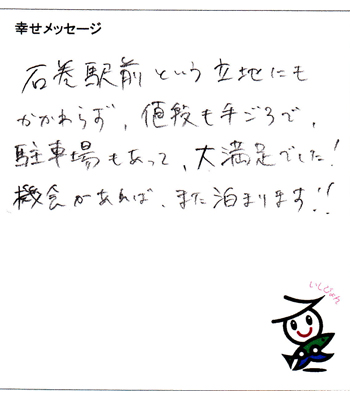 幸せメッセージ
石巻駅前という立地にも
かかわらず、値段も手ごろで、
駐車場もあって、大満足でした!
機会があれば、また泊まります!!
いしぴょん